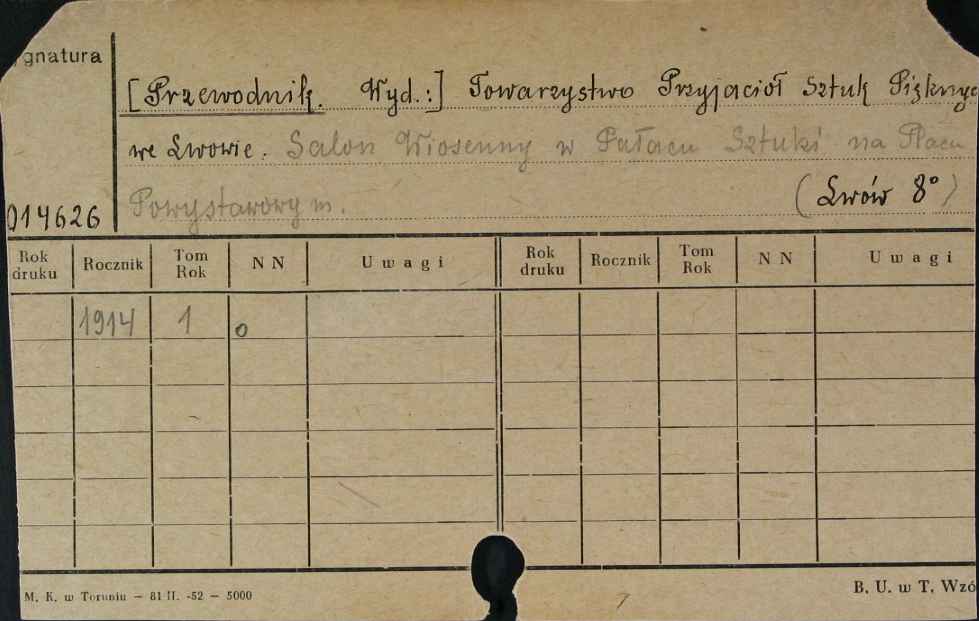 ygnatura
[Przewodnik. Wyd.:] Towarzystwo Przyjaciół Sztuk Pięknyc
we Lwowie. Salon Wiosenny w Pałacu Sztuki na Placu
Powystawowym.
(Lwów 8°)
014626
Rok druku Rocznik Tom Rok NN Uwagi Rok druku Rocznik Tom Rok NN Uwagi
1914 1 o
M. K. w Toruniu — 81 II. -52 — 5000
B. U. w T. Wzó